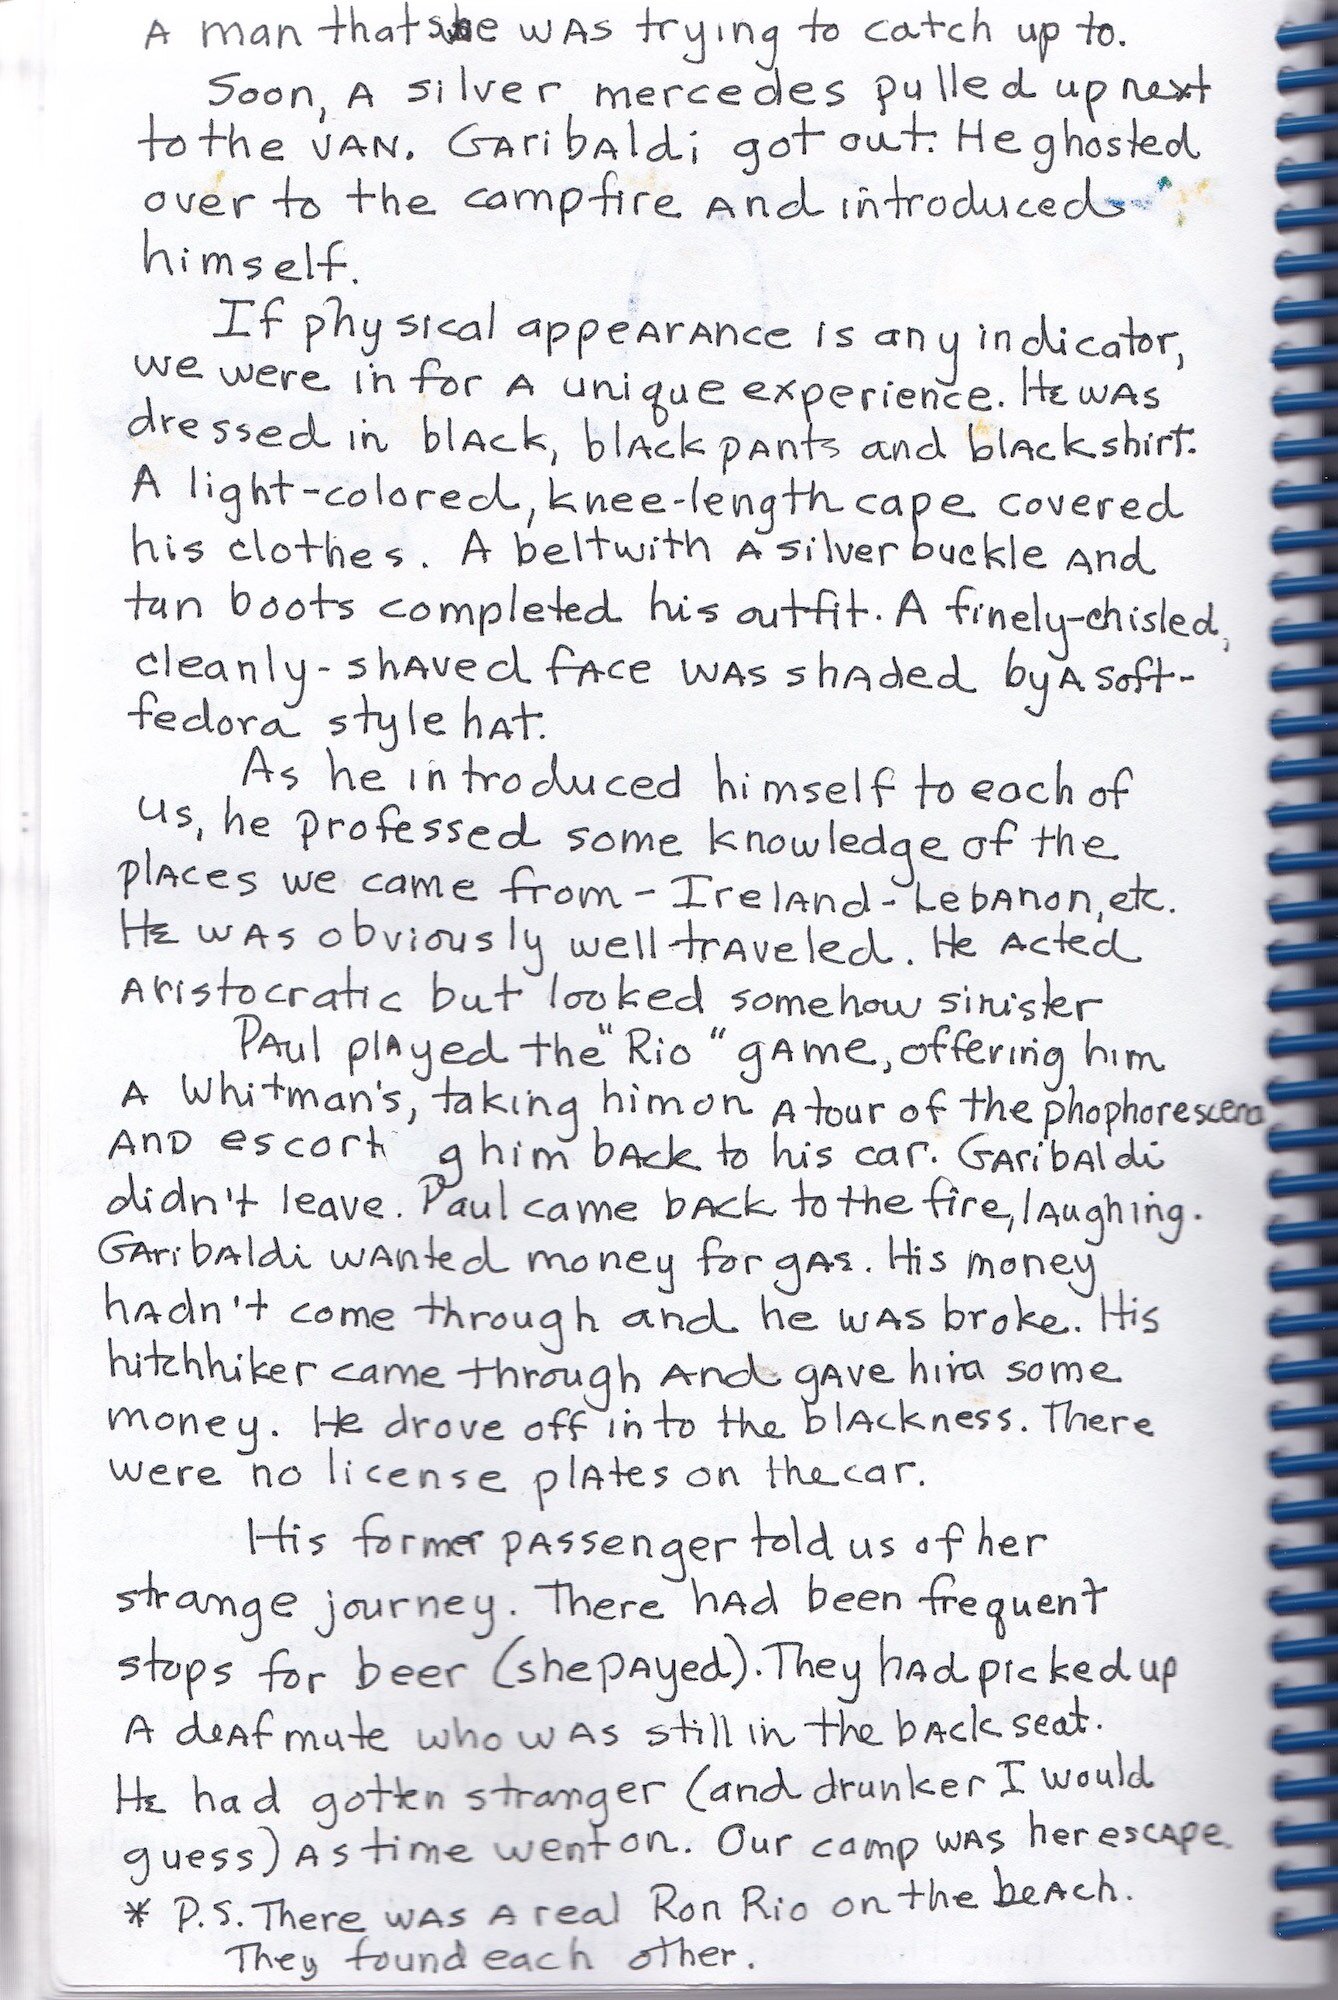 A man that she was trying to catch up to.
Soon, A silver mercedes pulled up next
to the VAN. Garibaldi got out. He ghosted
over to the campfire and introduced
himself.
If physical appearance is any indicator,
we were in for A unique experience. He was
dressed in black, black pants and black shirt.
A light-colored, knee-length cape covered
his clothes. A belt with A silver buckle and
tan boots completed his outfit. A finely-chisled,
cleanly-shaved face was shaded by A soft-
fedora style hat.
As he introduced himself to each of
us, he professed some knowledge of the
places we came from - Ireland - Lebanon, etc.
He was obviously well traveled. He Acted
Aristocratic but looked somehow sinister
Paul played the "Rio" game, offering him
A Whitman's, taking him on A tour of the phophorescena
AND escort g him back to his car. Garibaldi
didn't leave. Paul came back to the fire, laughing.
Garibaldi wanted money for gas. His money
hadn't come through and he was broke. His
hitchhiker came through And gave him some
money. He drove off into the blackness. There
were no license plates on the car.
His former passenger told us of her
strange journey. There had been frequent
stops for beer (she payed). They had picked up
A deaf mute who was still in the back seat.
He had gotten stranger (and drunker I would
guess) As time went on. Our camp was her escape.
* P.S. There was A real Ron Rio on the beach.
They found each other.